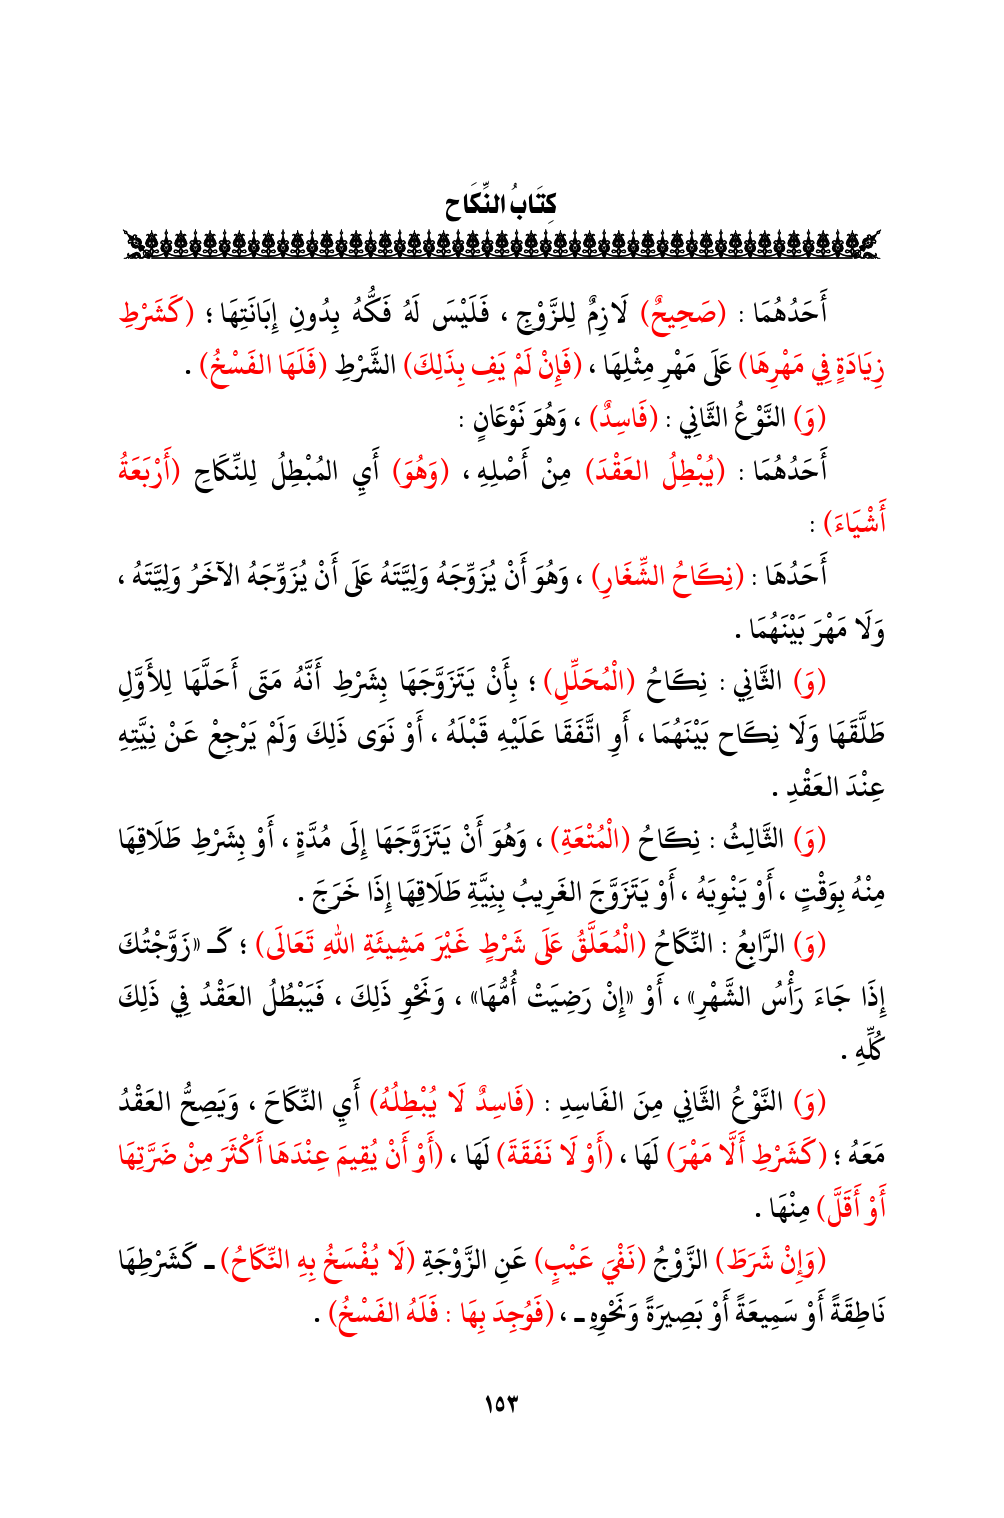 كِتَابُ النِّكَاح
أَحَدُهُمَا : (صَحِيحٌ) لَازِمٌ لِلزَّوْجِ ، فَلَيْسَ لَهُ فَكُّهُ بِدُونِ إِبَانَتِهَا ؛ (كَشَرْطِ
زِيَادَةٍ فِي مَهْرِهَا) عَلَى مَهْرِ مِثْلِهَا ، (فَإِنْ لَمْ يَفِ بِذَلِكَ) الشَّرْطِ (فَلَهَا الفَسْخُ) .
(وَ) النَّوْعُ الثَّانِي : (فَاسِدٌ) ، وَهُوَ نَوْعَانِ :
أَحَدُهُمَا : (يُبْطِلُ العَقْدَ) مِنْ أَصْلِهِ ، (وَهُوَ) أَيِ المُبْطِلُ لِلنِّكَاحِ (أَرْبَعَةُ
أَشْيَاءَ) :
أَحَدُهَا : (نِكَاحُ الشِّغَارِ) ، وَهُوَ أَنْ يُزَوِّجَهُ وَلِيَّتَهُ عَلَى أَنْ يُزَوِّجَهُ الآخَرُ وَلِيَّتَهُ ،
وَلَا مَهْرَ بَيْنَهُمَا .
(وَ) الثَّانِي : نِكَاحُ (الْمُحَلِّلِ) ؛ بِأَنْ يَتَزَوَّجَهَا بِشَرْطِ أَنَّهُ مَتَى أَحَلَّهَا لِلأَوَّلِ
طَلَّقَهَا وَلَا نِكَاح بَيْنَهُمَا ، أَوِ اتَّفَقَا عَلَيْهِ قَبْلَهُ ، أَوْ نَوَى ذَلِكَ وَلَمْ يَرْجِعْ عَنْ نِيَّتِهِ
عِنْدَ العَقْدِ .
(وَ) الثَّالِثُ : نِكَاحُ (الْمُتْعَةِ) ، وَهُوَ أَنْ يَتَزَوَّجَهَا إِلَى مُدَّةٍ ، أَوْ بِشَرْطِ طَلَاقِهَا
مِنْهُ بِوَقْتٍ ، أَوْ يَنْوِيَهُ ، أَوْ يَتَزَوَّجَ الغَرِيبُ بِنِيَّةِ طَلَاقِهَا إِذَا خَرَجَ .
(وَ) الرَّابِعُ : النِّكَاحُ (الْمُعَلَّقُ عَلَى شَرْطٍ غَيْرَ مَشِيئَةِ اللهِ تَعَالَى) ؛ كَـ «زَوَّجْتُكَ
إِذَا جَاءَ رَأْسُ الشَّهْرِ» ، أَوْ «إِنْ رَضِيَتْ أُمُّهَا» ، وَنَحْوِ ذَلِكَ ، فَيَبْطُلُ العَقْدُ فِي ذَلِكَ
كُلِّهِ .
(وَ) النَّوْعُ الثَّانِي مِنَ الفَاسِدِ : (فَاسِدٌ لَا يُبْطِلُهُ) أَيِ النِّكَاحَ ، وَيَصِحُّ العَقْدُ
مَعَهُ ؛ (كَشَرْطِ أَلَّا مَهْرَ) لَهَا ، (أَوْ لَا نَفَقَةَ) لَهَا ، (أَوْ أَنْ يُقِيمَ عِنْدَهَا أَكْثَرَ مِنْ ضَرَّتِهَا
أَوْ أَقَلَّ) مِنْهَا .
(وَإِنْ شَرَطَ) الزَّوْجُ (نَفْيَ عَيْبٍ) عَنِ الزَّوْجَةِ (لَا يُفْسَخُ بِهِ النِّكَاحُ) ـ كَشَرْطِهَا
نَاطِقَةً أَوْ سَمِيعَةً أَوْ بَصِيرَةً وَنَحْوِهِ ـ ، (فَوُجِدَ بِهَا : فَلَهُ الفَسْخُ) .
١٥٣